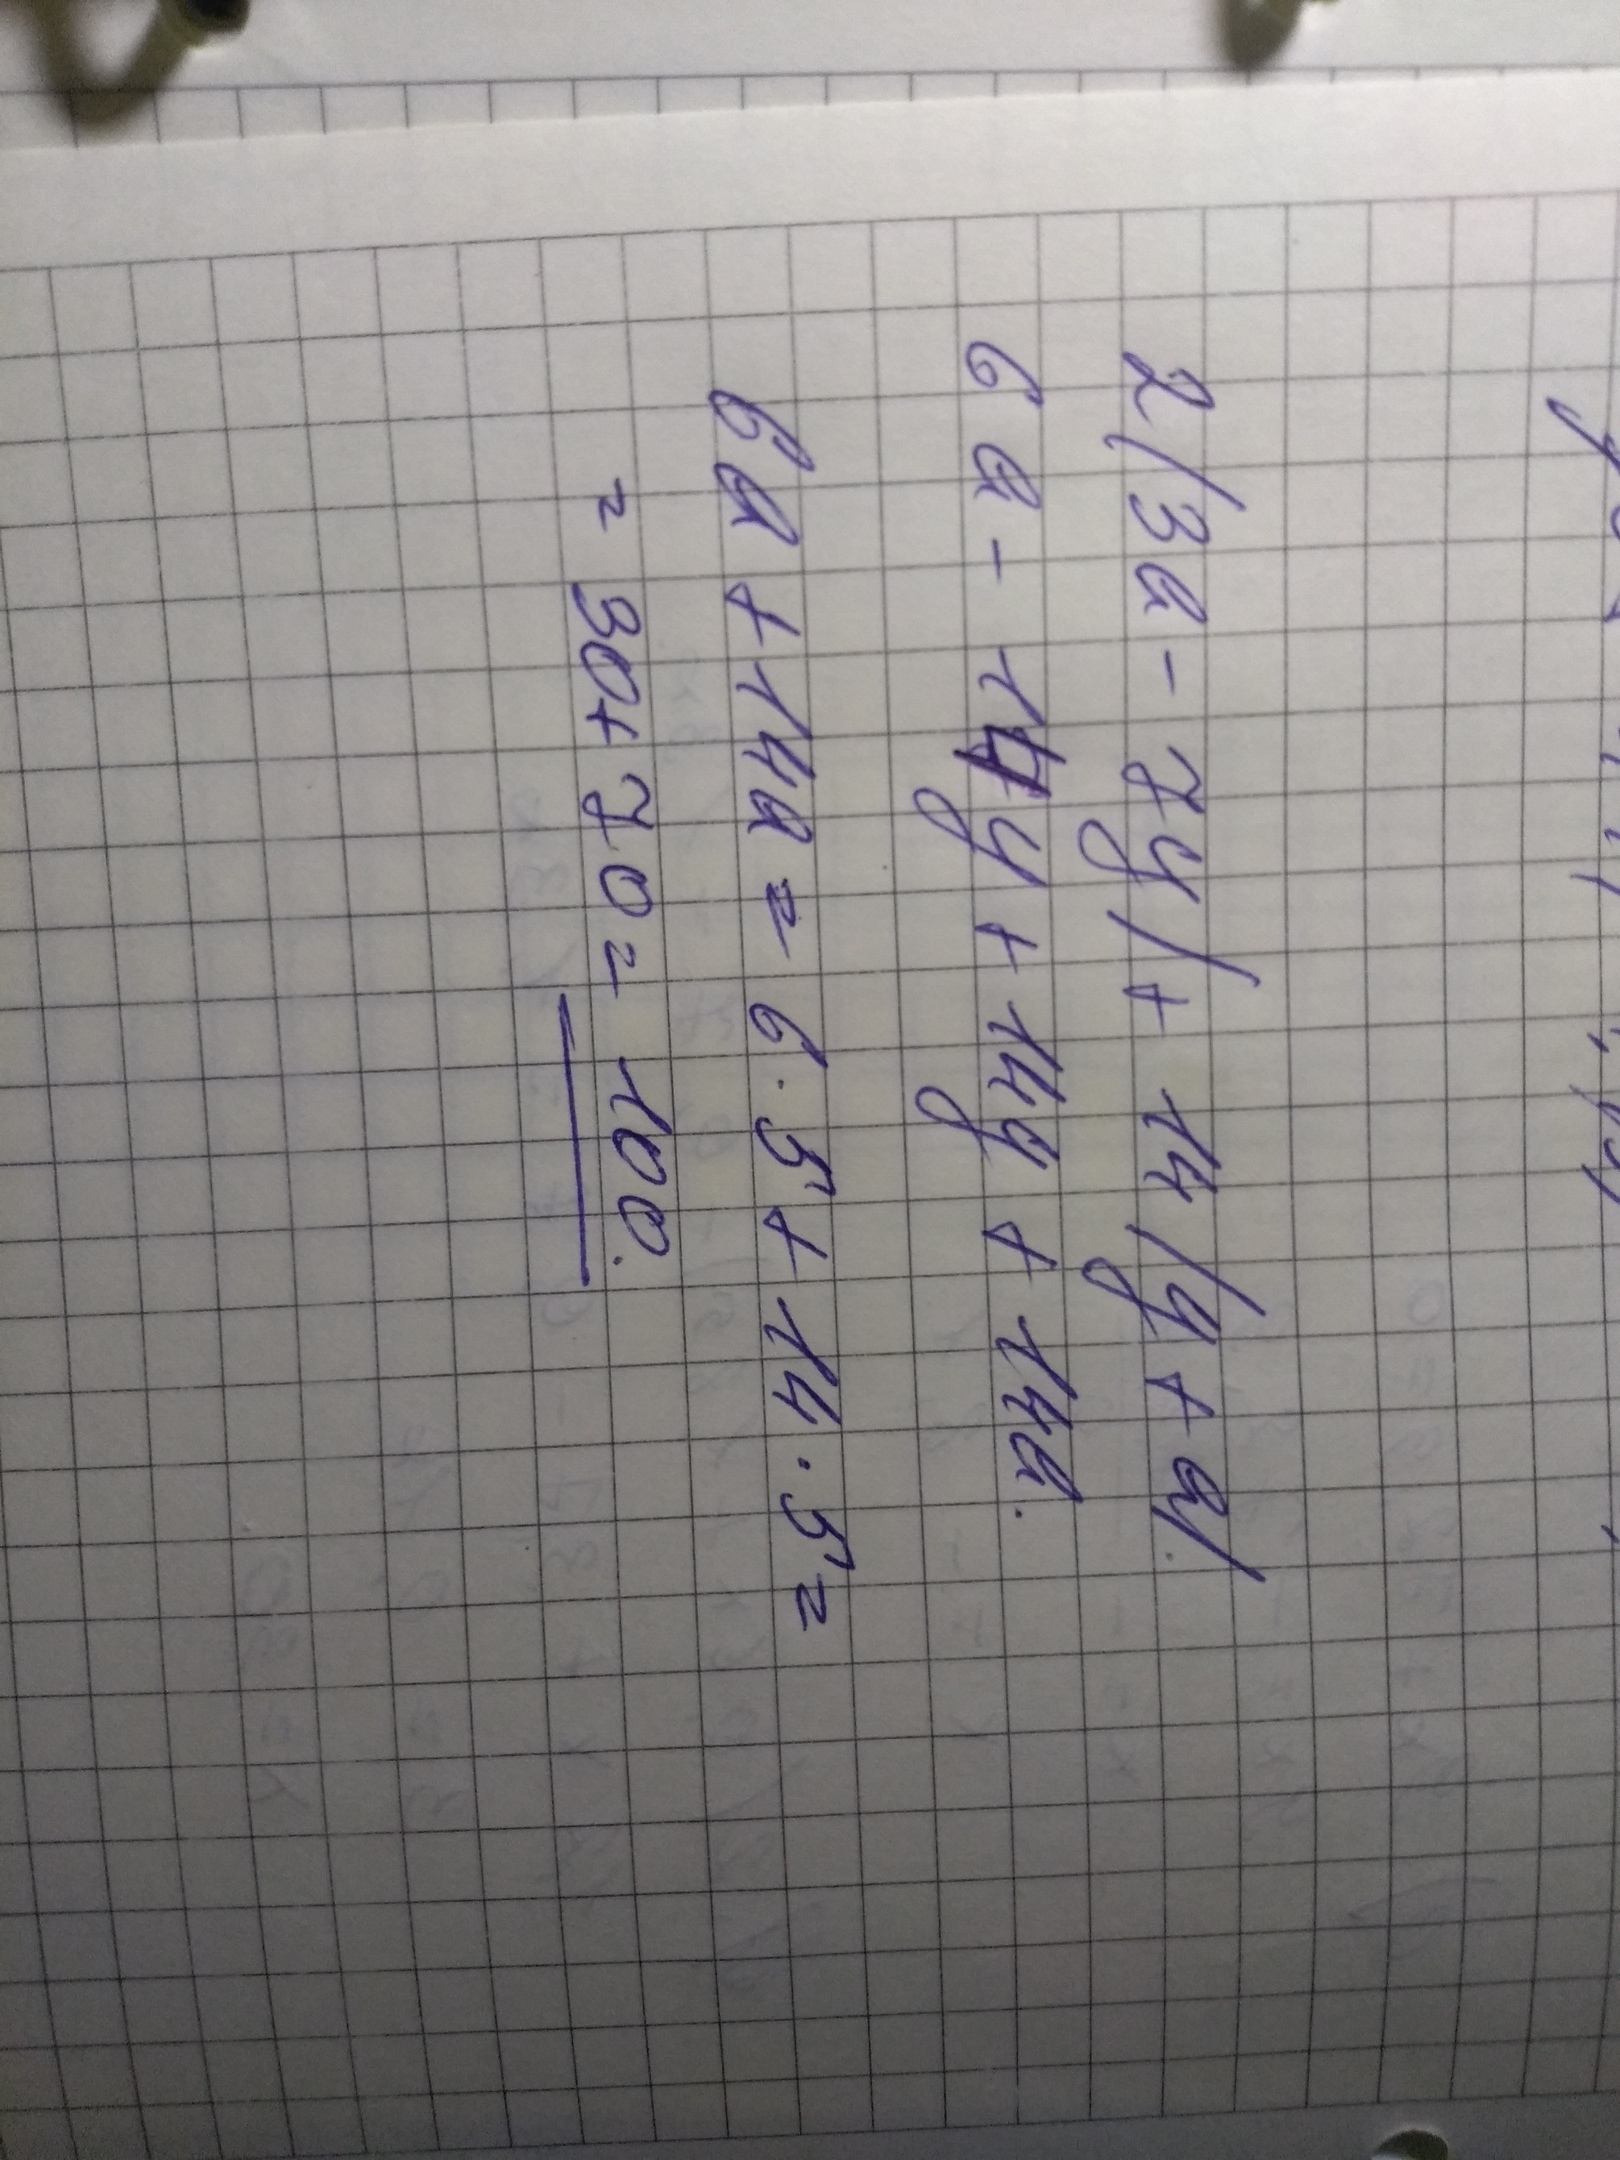 2(3a-7y)+14(y+a).
6a-14y+14y+14a.
6a+14a=6·5+14·5=
=30+70=100.